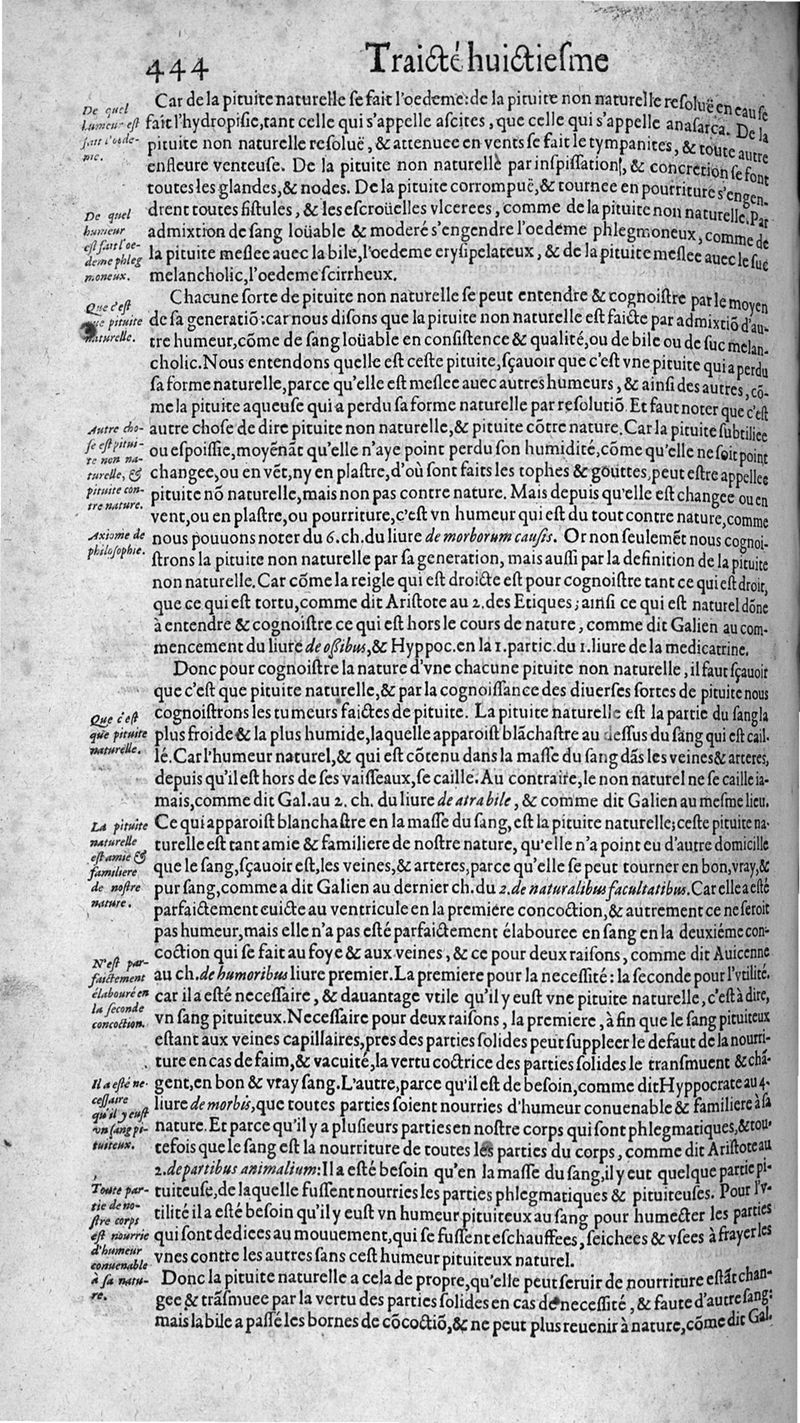 444 Traicté huictiesme
Car de la pituite naturelle se fait l'oedeme: de la pituite non naturelle resoluë en eau se
fait l'hydropisie, tant celle qui s'appelle ascites, que celle qui s'appelle anasarca. De la
pituite non naturelle resoluë, & attenuee en vents se fait le tympanites, & toute autre
enfleure venteuse. De la pituite non naturelle par inspissation, & concretion se font
toutes les glandes, & nodes. De la pituite corrompuë, & tournee en pourriture s'engen-
drent toutes fistules, & les escroüelles vlcerees, comme de la pituite non naturelle. Par
admixtion de sang loüable & moderé s'engendre l'oedeme phlegmoneux, comme de
la pituite meslee auec la bile, l'oedeme erysipelateux, & de la pituite meslee auec le suc
melancholic, l'oedeme scirrheux.
De quel
humeur est
fait l'oede-
me.
De quel
humeur
est fait l'oe-
deme phleg
moneux.
Chacune sorte de pituite non naturelle se peut entendre & cognoistre par le moyen
de sa generatiō: car nous disons que la pituite non naturelle est faicte par admixtiō d'au-
tre humeur, cōme de sang loüable en consistence & qualité, ou de bile ou de suc melan-
cholic. Nous entendons quelle est ceste pituite, sçauoir que c'est vne pituite qui a perdu
sa forme naturelle, parce qu'elle est meslee auec autres humeurs, & ainsi des autres, cō-
me la pituite aqueuse qui a perdu sa forme naturelle par resolutiō. Et faut noter que c'est
autre chose de dire pituite non naturelle, & pituite cōtre nature. Car la pituite subtiliee
ou espoissie, moyēnāt qu'elle n'aye point perdu son humidité, cōme qu'elle ne soit point
changee, ou en vēt, ny en plastre, d'où sont faits les tophes & gouttes, peut estre appellee
pituite nō naturelle, mais non pas contre nature. Mais depuis qu'elle est changee ou en
vent, ou en plastre, ou pourriture, c'est vn humeur qui est du tout contre nature, comme
nous pouuons noter du 6. ch. du liure de morborum causis. Or non seulemēt nous cognoi-
strons la pituite non naturelle par sa generation, mais aussi par la definition de la pituite
non naturelle. Car cōme la reigle qui est droicte est pour cognoistre tant ce qui est droit,
que ce qui est tortu, comme dit Aristote au 2. des Etiques; ainsi ce qui est naturel dōne
à entendre & cognoistre ce qui est hors le cours de nature, comme dit Galien au com-
mencement du liure de ossibus, & Hyppoc. en la 1. partic. du 1. liure de la medicatrine.
Que c'est
que pituite
naturelle.
Autre cho-
se est pitui-
te non na-
turelle, &
pituite con-
tre nature.
Axiome de
philosophie.
Donc pour cognoistre la nature d'vne chacune pituite non naturelle, il faut sçauoir
que c'est que pituite naturelle, & par la cognoissance des diuerses sortes de pituite nous
cognoistrons les tumeurs faictes de pituite. La pituite naturelle est la partie du sang la
plus froide & la plus humide, laquelle apparoist blāchastre au dessus du sang qui est cail-
lé. Car l'humeur naturel, & qui est cōtenu dans la masse du sang dās les veines & arteres,
depuis qu'il est hors de ses vaisseaux, se caille. Au contraire, le non naturel ne se caille ia-
mais, comme dit Gal. au 2. ch. du liure de atra bile, & comme dit Galien au mesme lieu.
Ce qui apparoist blanchastre en la masse du sang, est la pituite naturelle; ceste pituite na-
turelle est tant amie & familiere de nostre nature, qu'elle n'a point eu d'autre domicille
que le sang, sçauoir est, les veines, & arteres, parce qu'elle se peut tourner en bon, vray, &
pur sang, comme a dit Galien au dernier ch. du 2. de naturalibus facultatibus. Car elle a esté
parfaictement cuicte au ventricule en la premiere concoction, & autrement ce ne seroit
pas humeur, mais elle n'a pas esté parfaictement élabouree en sang en la deuxiéme con-
coction qui se fait au foye & aux veines, & ce pour deux raisons, comme dit Auicenne
au ch. de humoribus liure premier. La premiere pour la necessité: la seconde pour l'vtilité.
car il a esté necessaire, & dauantage vtile qu'il y eust vne pituite naturelle, c'est à dire,
vn sang pituiteux. Necessaire pour deux raisons, la premiere, à fin que le sang pituiteux
estant aux veines capillaires, pres des parties solides peut suppleer le defaut de la nourri-
ture en cas de faim, & vacuité, la vertu coctrice des parties solides le transmuent & chā-
gent, en bon & vray sang. L'autre, parce qu'il est de besoin, comme dit Hyppocrate au 4.
liure de morbis, que toutes parties soient nourries d'humeur conuenable & familiere à sa
nature. Et parce qu'il y a plusieurs parties en nostre corps qui sont phlegmatiques, & tou-
tefois que le sang est la nourriture de toutes les parties du corps, comme dit Aristote au
2. de partibus animalium: Il a esté besoin qu'en la masse du sang, il y eut quelque partie pi-
tuiteuse, de laquelle fussent nourries les parties phlegmatiques & pituiteuses. Pour l'v-
tilité il a esté besoin qu'il y eust vn humeur pituiteux au sang pour humecter les parties
qui sont dedices au mouuement, qui se fussent eschauffees, seichees & vsees à frayer les
vnes contre les autres sans cest humeur pituiteux naturel.
Que c'est
que pituite
naturelle.
La pituite
naturelle
est amie &
familiere
de nostre
nature.
N'est par-
faictement
élabouré en
la seconde
concoction.
Il a esté ne-
cessaire
qu'il y eust
vn sang pi-
tuiteux.
Toute par-
tie de no-
stre corps
est nourrie
d'humeur
conuenable
à sa natu-
re.
Donc la pituite naturelle a cela de propre, qu'elle peut seruir de nourriture estāt chan-
gee & trāsmuee par la vertu des parties solides en cas de necessité, & faute d'autre sang:
mais la bile a passé les bornes de cōcoctiō, & ne peut plus reuenir à nature, cōme dit Gal.